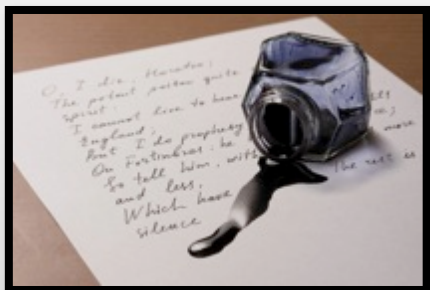 O, I die, Horatio;
The potent poison quite
spirit:
I cannot live to hear
England;
But I do prophesy
On Fortinbras: he
So tell him, with more
and less,
Which have The rest is
silence